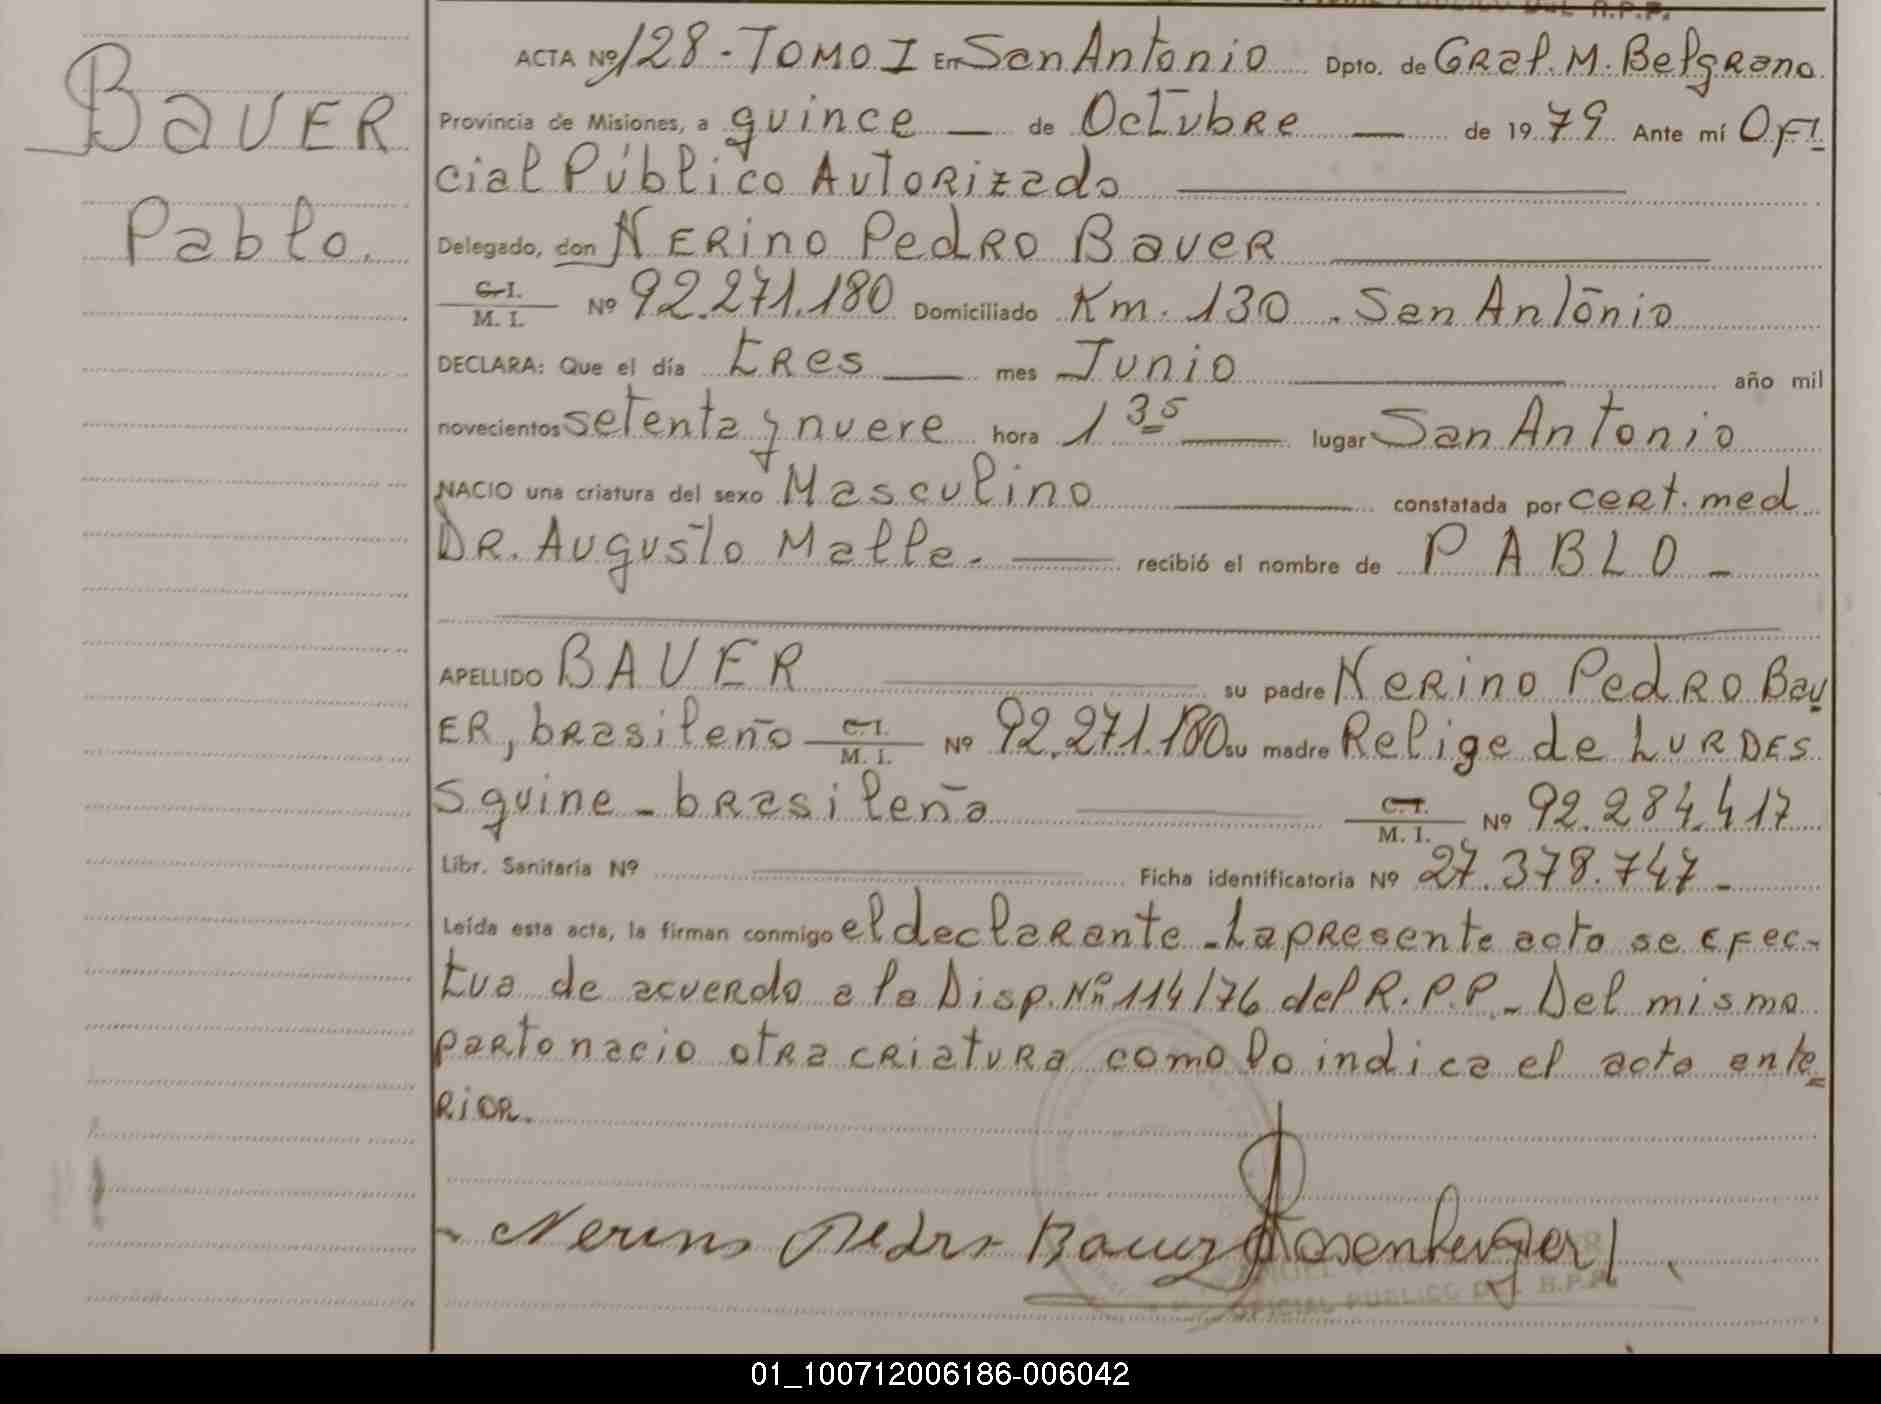 BAUER
Pablo.
ACTA Nº 128 - TOMO I En San Antonio Dpto. de GRal. M. Belgrano
Provincia de Misiones, a quince — de Octubre — de 1979 Ante mí OFI
cial Público AutoRizado
Delegado, don NERino PedRO BaueR
C. I.
M. I. Nº 92.271.180 Domiciliado Km. 130 . San Antonio
DECLARA: Que el día tRes — mes Junio — año mil
novecientos setenta y nueve hora 1 35 — lugar San Antonio
NACIO una criatura del sexo Masculino — constatada por ceRt. med
DR. Augusto Matte. — recibió el nombre de PABLO -
APELLIDO BAUER su padre NeRino PedRO Bau
ER, bRasileño C. I. M. I. Nº 92.271.180 su madre Relige de LURDES
Squine - bRasileña C. I. M. I. Nº 92.284.417
Libr. Sanitaria Nº Ficha identificatoria Nº 27.378.747 -
Leída esta acta, la firman conmigo el declaRante - La pResente acta se efec-
tua de acuerdo a la Disp. Nº 114/76 del R.P.P. - Del mismo
paRto nacio otRa cRiatuRa como lo indica el acta ante
RioR.
Nerino Pedro Bauer Rosenberger
OFICIAL PUBLICO DEL R.P.P.
01_100712006186-006042